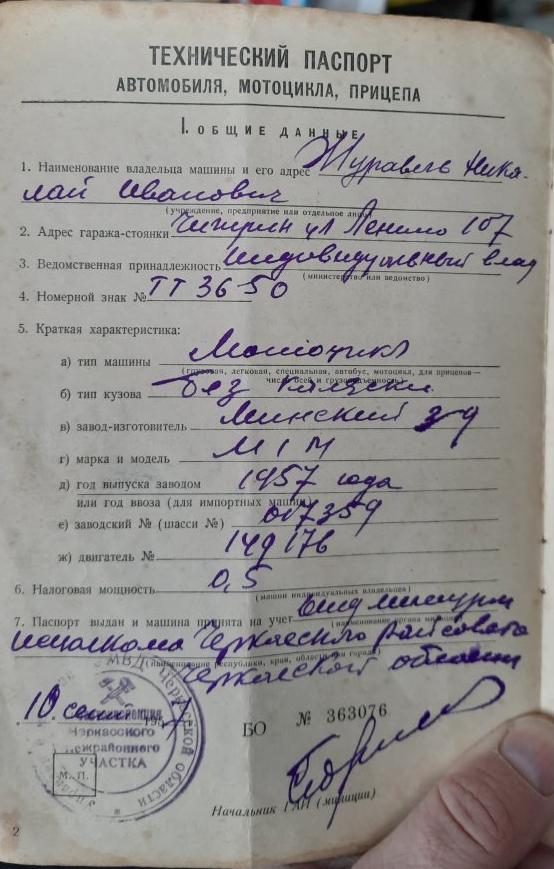 ТЕХНИЧЕСКИЙ ПАСПОРТ
АВТОМОБИЛЯ, МОТОЦИКЛА, ПРИЦЕПА
I. ОБЩИЕ ДАННЫЕ
1. Наименование владельца машины и его адрес Журавель Нико-
лай Иванович
(учреждение, предприятие или отдельное лицо)
2. Адрес гаража-стоянки Чигирин ул Ленина 107
3. Ведомственная принадлежность Индивидуальный влад
(министерство или ведомство)
4. Номерной знак № ТТ 3650
5. Краткая характеристика:
а) тип машины Мотоцикл
(грузовая, легковая, специальная, автобус, мотоцикл, для прицепов—
число осей и грузоподъемность)
б) тип кузова без коляски
в) завод-изготовитель Минский з-д
г) марка и модель М1М
д) год выпуска заводом 1957 года
или год ввоза (для импортных машин)
е) заводский № (шасси №) 017359
ж) двигатель № 149176
6. Налоговая мощность 0,5
(машин индивидуальных владельцев)
7. Паспорт выдан и машина принята на учет
(наименование органа милиции)
исполкома Черкасского райсовета
(наименование республики, края, области или города)
Черкасской области
10 1957
Черкасского
Межрайонного
УЧАСТКА
М. П.
БО № 363076
Начальник ГАИ (милиции)
2